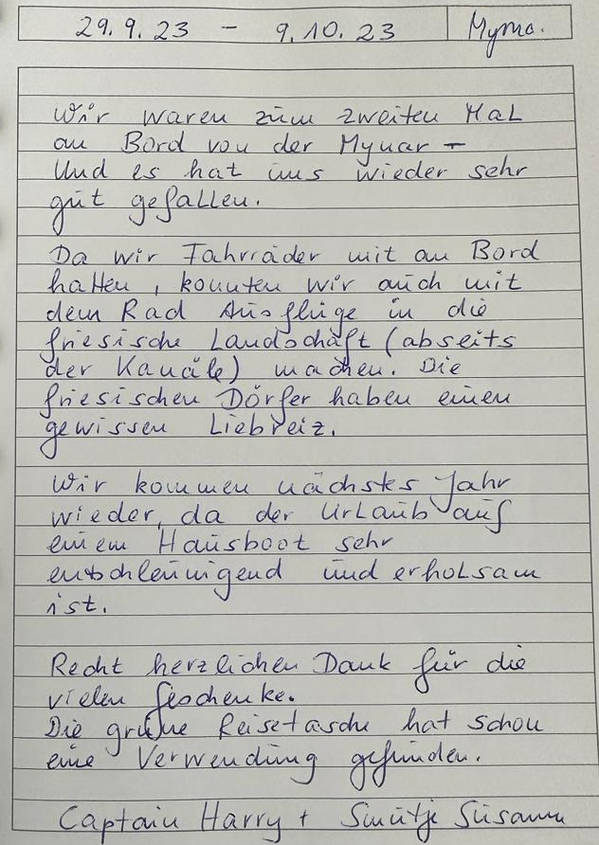 29.9.23 - 9.10.23 Myma.
Wir waren zum zweiten Mal
an Bord von der Mynar -
Und es hat uns wieder sehr
gut gefallen.
Da wir Fahrräder mit an Bord
hatten, konnten wir auch mit
dem Rad Ausflüge in die
friesische Landschaft (abseits
der Kanäle) machen. Die
friesischen Dörfer haben einen
gewissen Liebreiz.
Wir kommen nächstes Jahr
wieder, da der Urlaub auf
einem Hausboot sehr
entschleunigend und erholsam
ist.
Recht herzlichen Dank für die
vielen Geschenke.
Die grüne Reisetasche hat schon
eine Verwendung gefunden.
Captain Harry + Smutje Susann